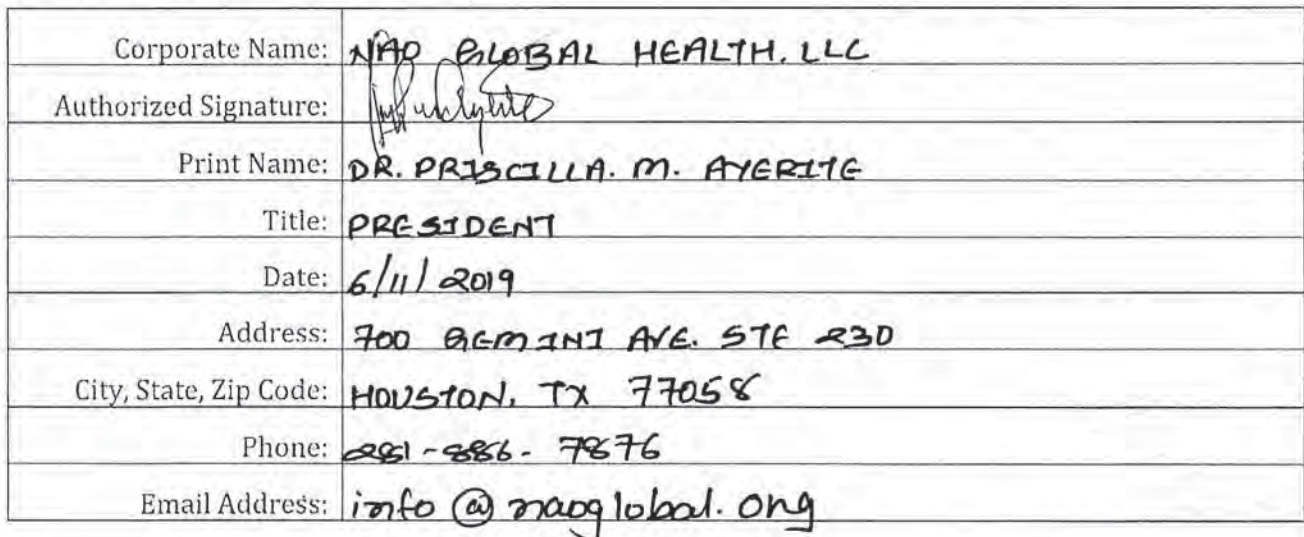 Corporate Name: NAO GLOBAL HEALTH. LLC
Authorized Signature:
Print Name: DR. PRISCILLA. M. AYERITE
Title: PRESIDENT
Date: 6/11/2019
Address: 700 GEMINI AVE. STE 230
City, State, Zip Code: HOUSTON, TX 77058
Phone: 281-886-7876
Email Address: info@naoglobal.org